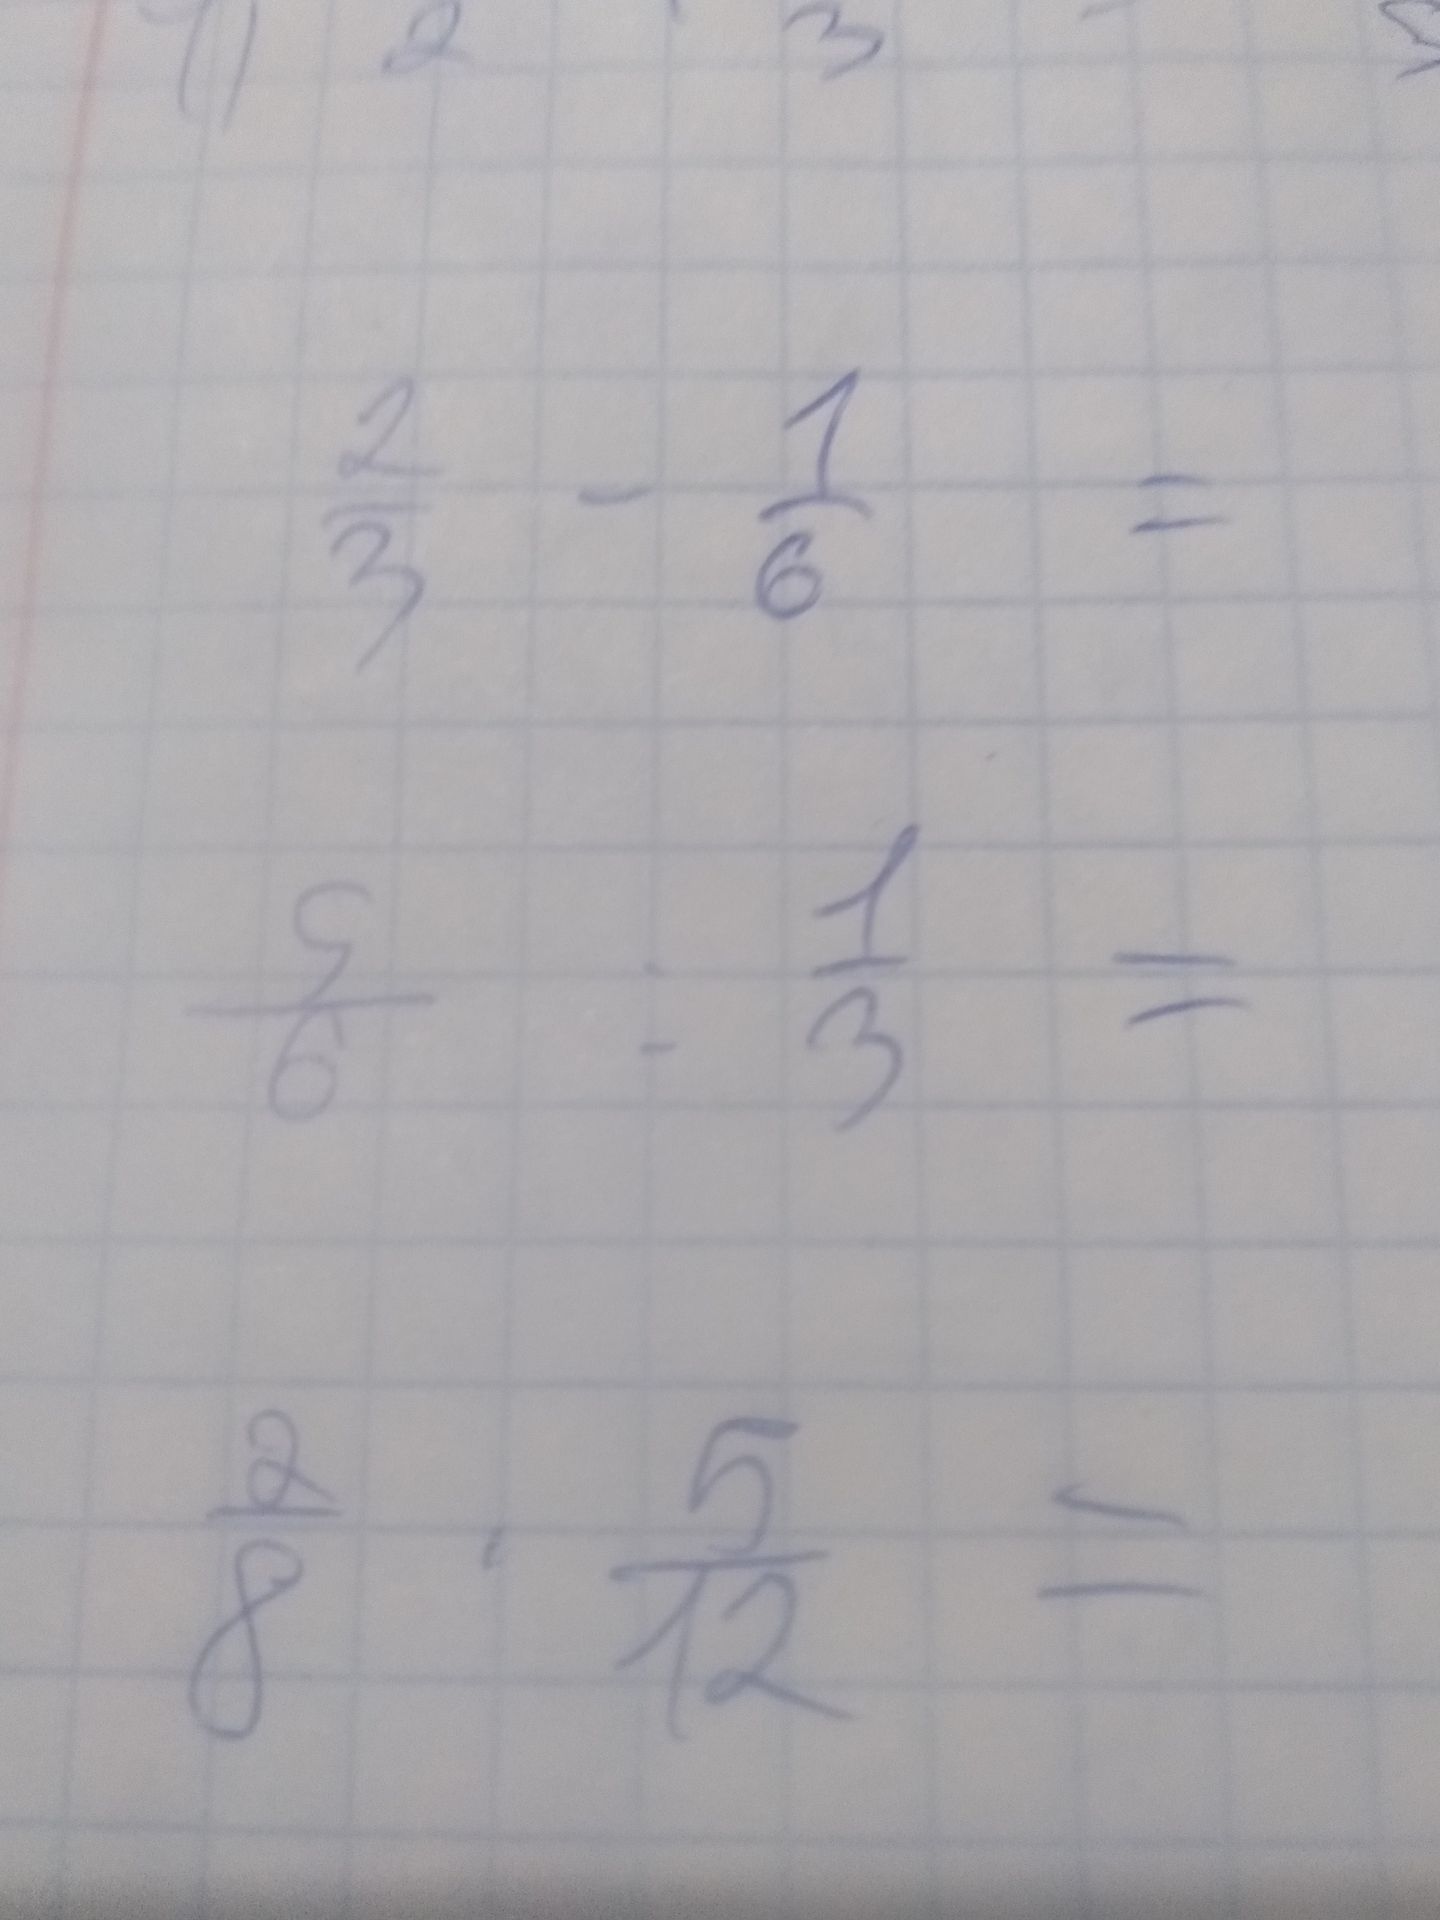 2 3
2/3 - 1/6 =
5/6 : 1/3 =
2/8 · 5/12 =